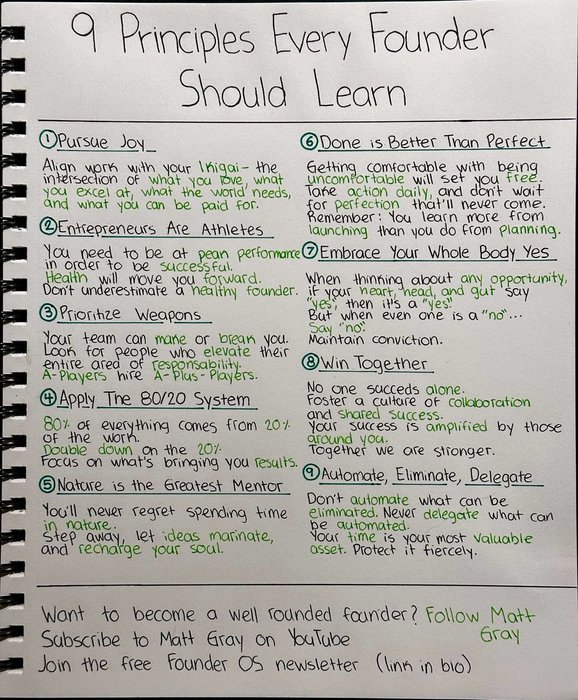 9 Principles Every Founder
Should Learn
① Pursue Joy
Align work with your Ikigai - the
intersection of what you love, what
you excel at, what the world needs,
and what you can be paid for.
② Entrepreneurs Are Athletes
You need to be at pean performance
in order to be successful.
Health will move you forward.
Don't underestimate a healthy founder.
③ Prioritize Weapons
Your team can make or break you.
Look for people who elevate their
entire area of responsability.
A-Players hire A-Plus-Players.
④ Apply The 80/20 System
80% of everything comes from 20%
of the work.
Double down on the 20%
Focus on what's bringing you results.
⑤ Nature is the Greatest Mentor
You'll never regret spending time
in nature.
Step away, let ideas marinate,
and recharge your soul.
⑥ Done is Better Than Perfect
Getting comfortable with being
uncomfortable will set you free.
Take action daily, and don't wait
for perfection that'll never come.
Remember: You learn more from
launching than you do from planning.
⑦ Embrace Your Whole Body Yes
When thinking about any opportunity,
if your heart, head, and gut say
"yes", then it's a "yes"
But when even one is a "no"...
Say "no".
Maintain conviction.
⑧ Win Together
No one succeds alone.
Foster a culture of collaboration
and shared success.
Your success is amplified by those
around you.
Together we are stronger.
⑨ Automate, Eliminate, Delegate
Don't automate what can be
eliminated. Never delegate what can
be automated.
Your time is your most valuable
asset. Protect it fiercely.
Want to become a well rounded founder? Follow Matt
Gray
Subscribe to Matt Gray on YouTube
Join the free Founder OS newsletter (link in bio)